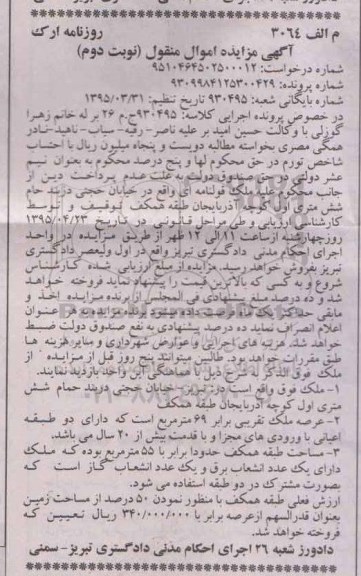 م الف ۳۰۶۴ روزنامه ارک
آگهی مزایده اموال منقول (نوبت دوم)
شماره درخواست: ۹۵۱۰۴۶۴۵۰۲۵۰۰۰۱۲
شماره پرونده: ۹۳۰۹۹۸۴۱۲۵۳۰۰۴۲۹
شماره بایگانی شعبه: ۹۳۰۴۹۵ تاریخ تنظیم: ۱۳۹۵/۰۳/۳۱
در خصوص پرونده اجرایی کلاسه: ۹۳۰۴۹۵ج.م ۲۶ بر له خانم زهرا
گوزلی با وکالت حسین امید بر علیه ناصر-رقیه-سیاب-ناهید-نادر
همگی مصری بخواسته مطالبه دویست و پنجاه میلیون ریال با احتساب
شاخص تورم در حق محکوم لها و پنج درصد محکوم به بعنوان نیم
عشر دولتی در حق صندوق دولت به علت عدم پرداخت دین از
جانب محکوم علیه ملک قولنامه ای واقع در خیابان حجتی دربند حام
شش متری اول کوچه آذربایجان طبقه همکف توقیف و توسط
کارشناسی ارزیابی و طی مراحل قانونی در تاریخ ۱۳۹۵/۰۴/۲۳
روز چهارشنبه از ساعت ۱۱ الی ۱۲ ظهر از طریق مزایده در واحد
اجرای احکام مدنی دادگستری تبریز واقع در اول ولیعصر دادگستری
تبریز بفروش خواهد رسید. مزایده از مبلغ ارزیابی شده کارشناس
شروع و به کسی که بالاترین قیمت را پیشنهاد نماید فروخته خواهد
شد و ده درصد مبلغ پیشنهادی فی المجلس از برنده مزایده اخذ و
مابقی حداکثر یک ماه فرصت داده میشود برنده مزایده به هر عنوان
اعلام انصراف نماید ده درصد پیشنهادی به نفع صندوق دولت ضبط
خواهد شد. هزینه های اجرایی و عوارض شهرداری و سایر هزینه ها
طبق مقررات خواهد بود. طالبین میتوانند پنج روز قبل از مزایده از
ملک فوق الذکر به شرح ذیل با هماهنگی این واحد بازدید نمایند.
۱- ملک فوق واقع است در: تبریز خیابان حجتی دربند حمام شش
متری اول کوچه آذربایجان طبقه همکف
۲- عرصه ملک تقریبی برابر ۶۹ مترمربع است که دارای دو طبقه
اعیانی با ورودی های مجزا و با قدمت بیش از ۲۰ سال می باشد.
۳- مساحت طبقه همکف حدودا برابر با ۵۵ مترمربع بوده که ملک
دارای یک عدد انشعاب برق و یک عدد انشعاب گاز است که
بصورت مشترک در دو طبقه استفاده می شود.
ارزش فعلی طبقه همکف با منظور نمودن ۵۰ درصد از مساحت زمین
بعنوان قدرالسهم از عرصه برابر با ۳۴۰/۰۰۰/۰۰۰ ریال تعیین که
فروخته خواهد شد.
دادورز شعبه ۲۶ اجرای احکام مدنی دادگستری تبریز- سمنی